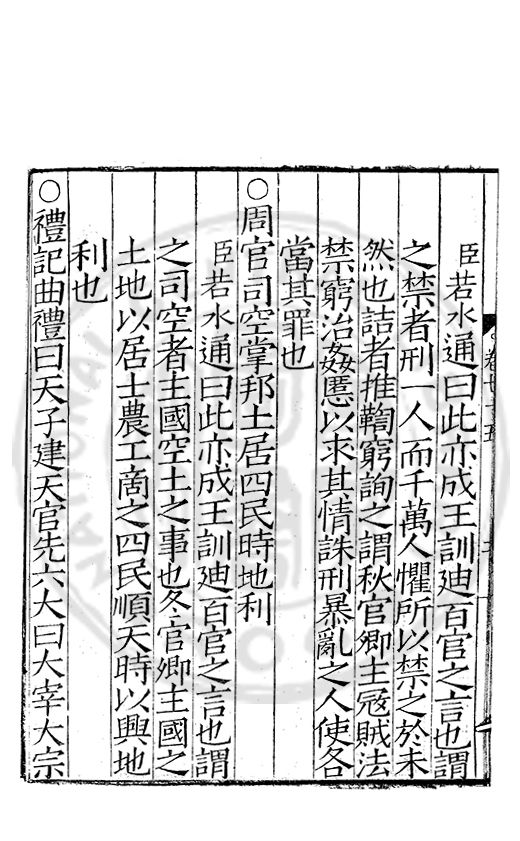 臣若水通曰此亦成王訓廸百官之言也謂
之禁者刑一人而千萬人懼所以禁之於未
然也詰者推鞫窮詢之謂秋官卿主冦賊法
禁窮治姦慝以求其情誅刑暴亂之人使各
當其罪也
○周官司空掌邦土居四民時地利
臣若水通曰此亦成王訓廸百官之言也謂
之司空者主國空土之事也冬官卿主國之
土地以居士農工商之四民順天時以興地
利也
○禮記曲禮曰天子建天官先六大曰大宰大宗